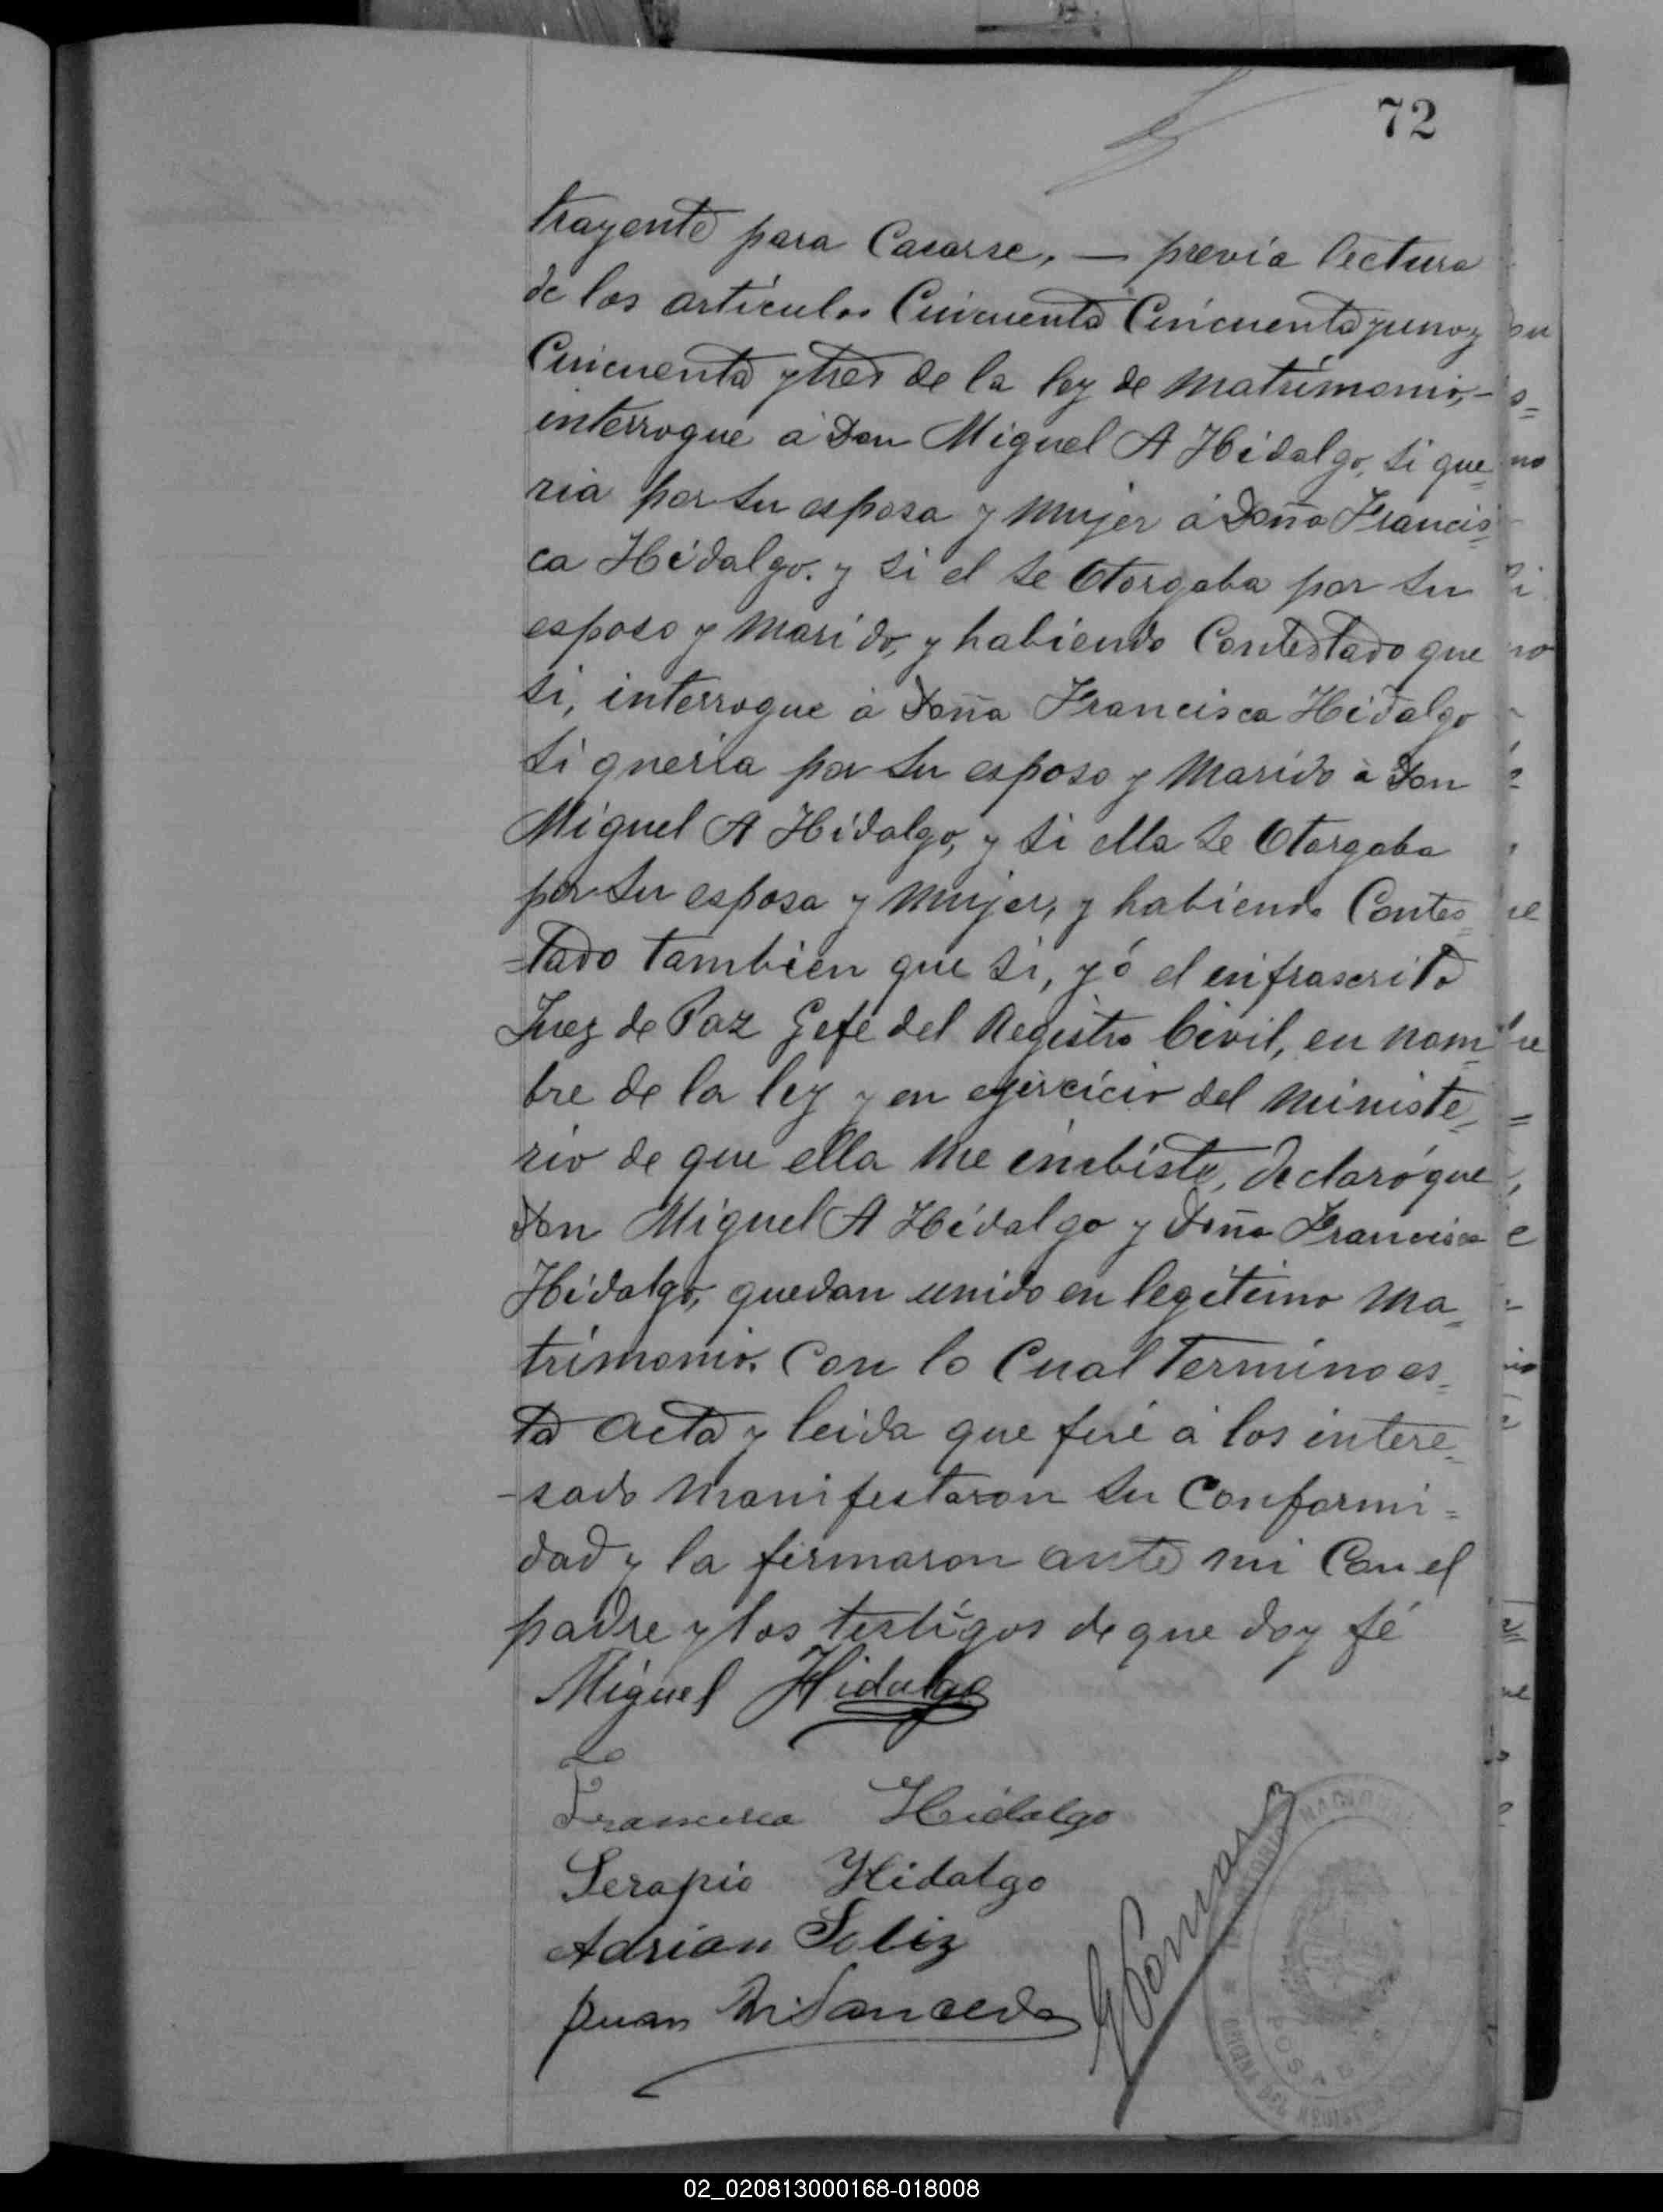 72
trayente para Casarse, — previa lectura
de los artículos Cincuenta Cincuenta y uno y
Cincuenta y tres de la ley de Matrimonio, -
interrogue á Don Miguel A Hidalgo, si que=
ria por su esposa y Mujer á Doña Francis=
ca Hidalgo. y si el se Otorgaba por su
esposo y Marido, y habiendo Contestado que
si, interrogue á Doña Francisca Hidalgo
si queria por su esposo y Marido á Don
Miguel A Hidalgo, y si ella se Otorgaba
por su esposa y Mujer, y habiendo Contes=
=tado tambien que si, yó el infrascrito
Juez de Paz Gefe del Registro Civil, en nom=
bre de la ley y en ejercicio del Ministe=
rio de que ella Me imbiste, declaró que
Don Miguel A Hidalgo y Doña Francisca
Hidalgo, quedan unido en legitimo Ma=
trimonio. Con lo Cual termino es=
ta acta y leida que fué á los intere=
-sado Manifestaron su Conformi=
dad y la firmaron ante mi Con el
padre y los testigos de que doy fé
Miguel Hidalgo
Francisca Hidalgo
Serapio Hidalgo
Adrian Soliz
Juan
NACIONAL
POSADAS
OFICINA DEL REGISTRO
02_020813000168-018008